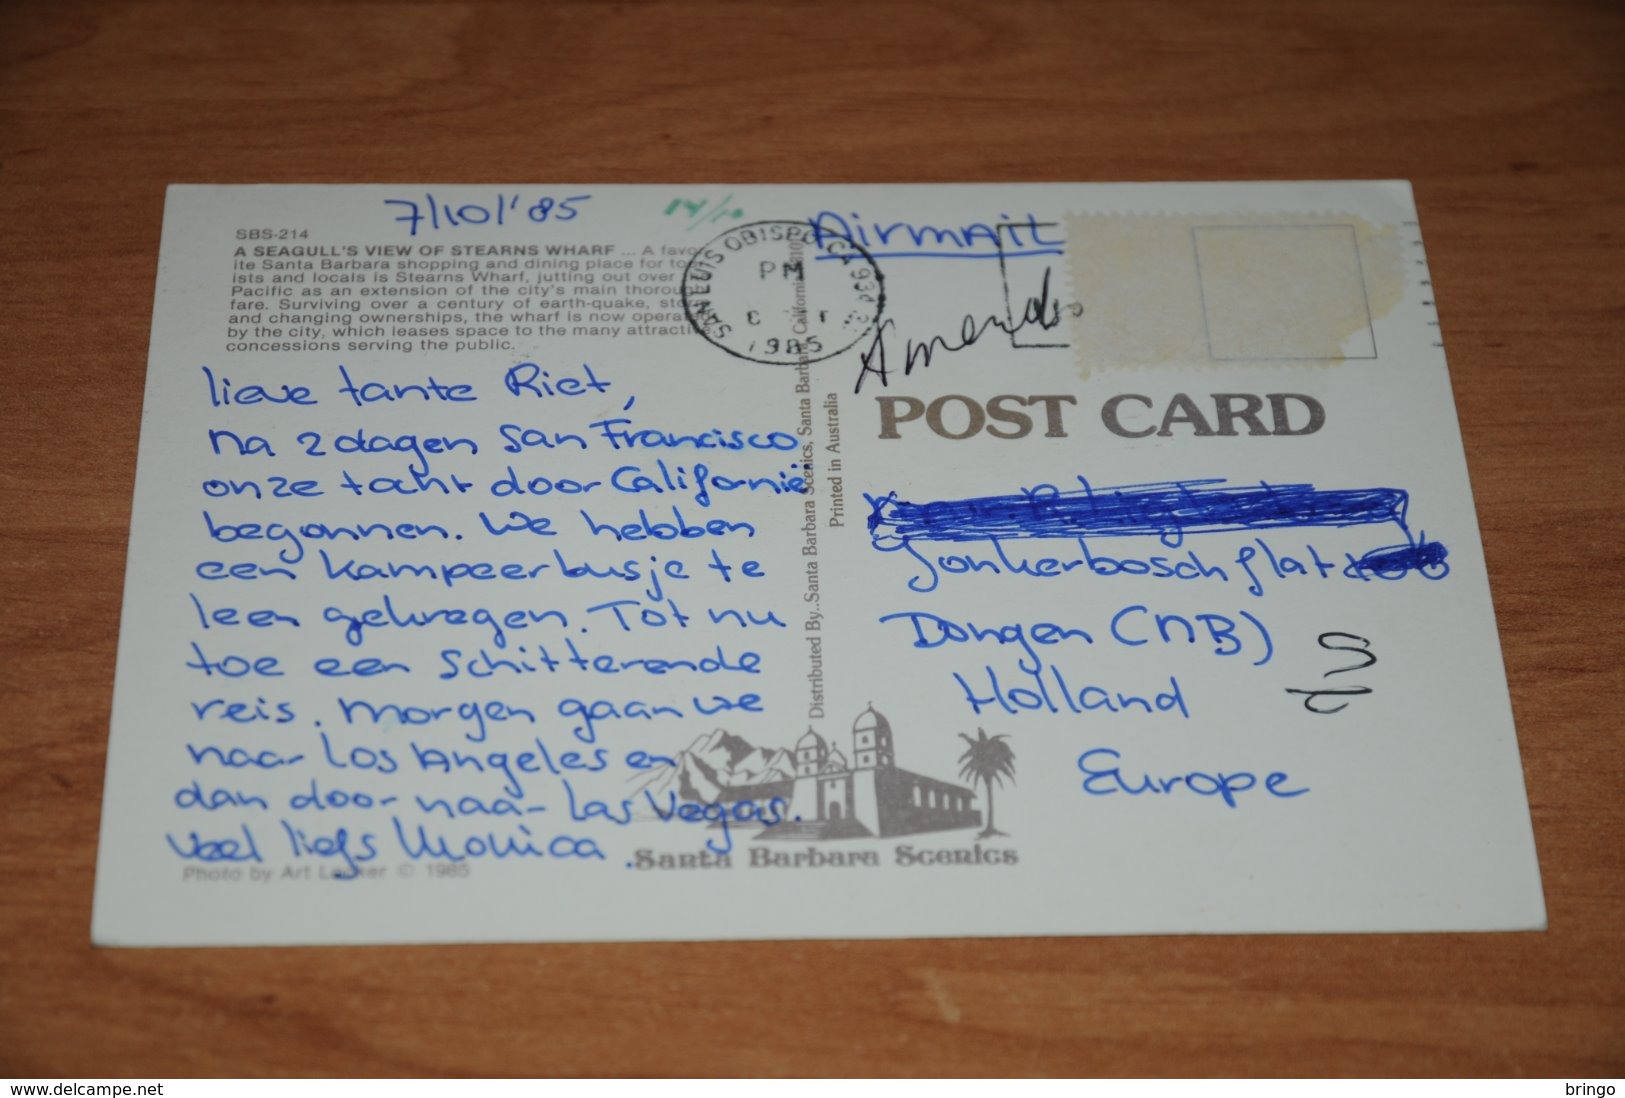 7/10/'85
14/10
SBS-214
A SEAGULL'S VIEW OF STEARNS WHARF ... A favor
ite Santa Barbara shopping and dining place for to
ists and locals is Stearns Wharf, jutting out over
Pacific as an extension of the city's main thorou
fare. Surviving over a century of earth-quake, sto
and changing ownerships, the wharf is now opera
by the city, which leases space to the many attracti
concessions serving the public.
lieve tante Riet,
na 2 dagen San Francisco
onze tocht door Californië
begonnen. We hebben
een kampeerbusje te
leen gekregen. Tot nu
toe een schitterende
reis. Morgen gaan we
naar Los Angeles en
dan door naar Las Vegas.
veel liefs Monica.
Photo by Art Looker © 1985
SAN LUIS OBISPO, CA 934
PM
1985
Airmail
POST CARD
Distributed By..Santa Barbara Scenics, Santa Barbara, California
Printed in Australia
Jonkerboschflat
Dongen (NB)
Holland
Europe
Santa Barbara Scenics
delcampe.net
bringo